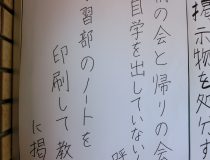 掲示物を処分す
朝の会と帰りの会
自学を出していない
呼
習部のノートを
印刷して教
に掲